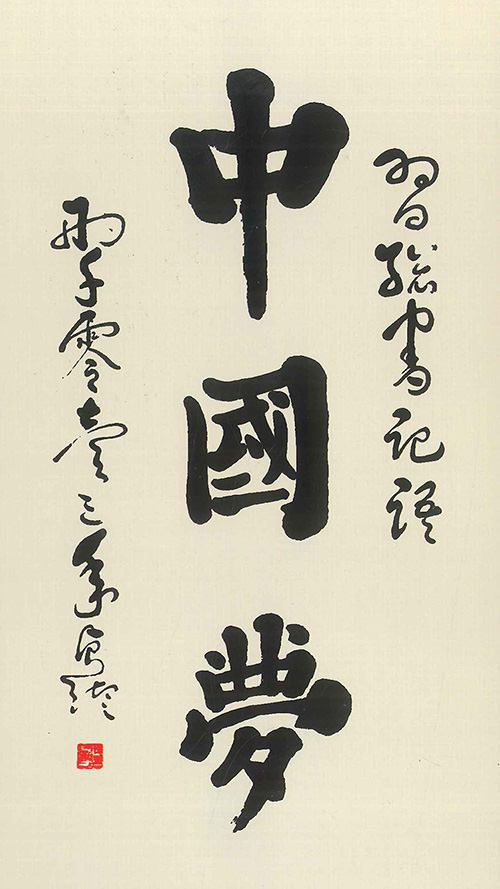 習總書記語
中國夢
兩千零壹三年